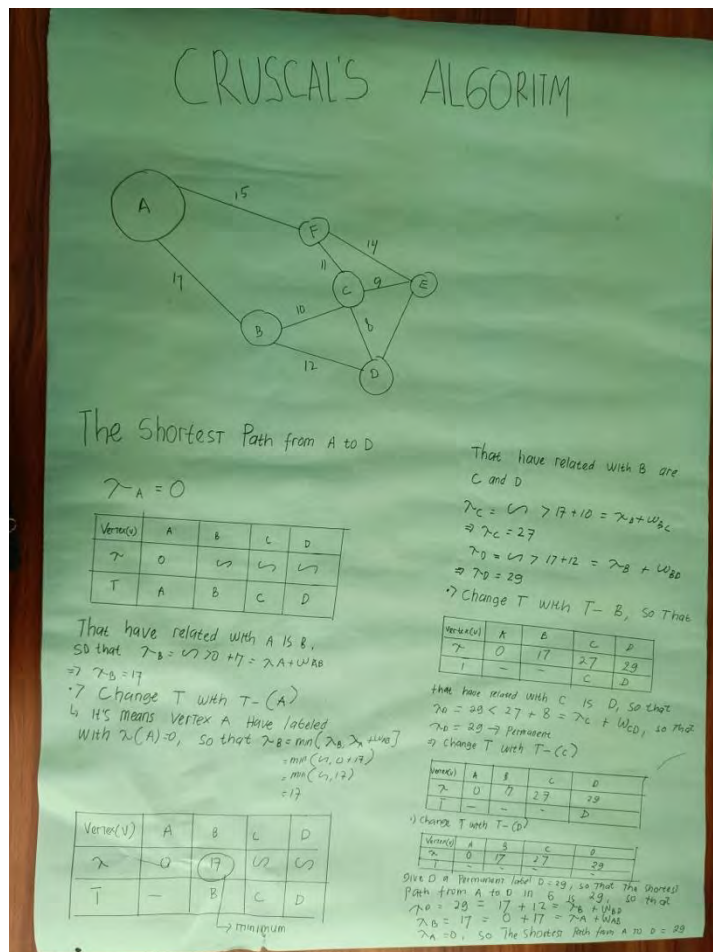 CRUSCAL'S ALGORITM
A
15
F
14
17
11
C
9
E
10
B
8
12
D
The Shortest Path from A to D
λA = 0
Vertex(v) A B C D
λ 0 ∽ ∽ ∽
T A B C D
That have related with A is B,
so that λB = ∽ > 0 + 17 = λA + WAB
=> λB = 17
•> Change T with T-(A)
↳ It's means Vertex A Have labeled
with λ(A)=0, so that λB = min{λB, λA + WAB}
= min(∽, 0+17)
= min(∽, 17)
= 17
Vertex(V) A B C D
λ 0 17 ∽ ∽
T - B C D
→ minimum
That have related with B are
C and D
λC = ∽ > 17 + 10 = λB + WBC
=> λC = 27
λD = ∽ > 17 + 12 = λB + WBD
=> λD = 29
•> Change T with T- B, so That
Vertex(v) A B C D
λ 0 17 27 29
T - - C D
that have related with C is D, so that
λD = 29 < 27 + 8 = λC + WCD, so that
λD = 29 → Permanent
=> Change T with T-(C)
Vertex(v) A B C D
λ 0 17 27 29
T - - - D
•) Change T with T-(D)
Vertex(v) A B C D
λ 0 17 27 29
T - - - -
Give D a Permanent label D = 29, so that The shortest
Path from A to D in G is 29, so that
λD = 29 = 17 + 12 = λB + WBD
λB = 17 = 0 + 17 = λA + WAB
λA = 0, so The Shortest Path from A to D = 29